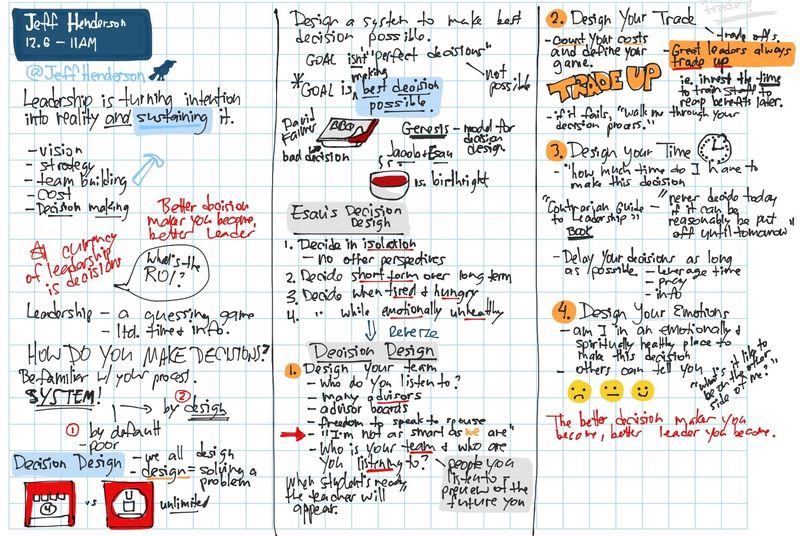 Jeff Henderson
12.6 - 11AM
@JeffHenderson
Leadership is turning intention
into reality and sustaining it.
- vision
- strategy
- team building
- cost
- Decision making
Better decision
maker you become,
better leader
currency
of leadership
is decisions
What's the
ROI?
Leadership - a guessing game
- ltd. time & info.
HOW DO YOU MAKE DECISIONS?
Be familiar w/ your process.
SYSTEM!
② by design
① by default
- poor
Decision Design
- we all design
- design = solving a
problem
4 vs unlimited
Design a system to make best
decision possible.
GOAL isn't "perfect decisions"
making
not
possible
* GOAL is best decision
possible.
David
bad decision
BBQ
Genesis - model for
decision
design.
Jacob + Esau
vs. birthright
Esau's Decision
Design
1. Decide in isolation
- no other perspectives
2. Decide short term over long term
3. Decide when tired & hungry
4. " while emotionally unhealthy
Reverse
Decision Design
1. Design your team
- who do you listen to?
- many advisors
- advisor boards
- freedom to speak to spouse
- "I'm not as smart as we are"
- Who is your team & who are
you listening to?
people you
listen to =
preview of the
future you
"When student's ready
the teacher will
appear.
2. Design Your Trade
- trade offs.
- count your costs
and define your
game.
- Great leaders always
trade up
TRADE UP
i.e. invest the time
to train staff to
reap benefits later.
- if it fails, "walk me through your
decision process."
3. Design your Time
- "how much time do I have to
make this decision
"Contrarian Guide
to Leadership"
Book
- "never decide today
if it can be
reasonably be put
off until tomorrow"
- Delay your decisions as long
as possible.
- leverage time
- pray
- info
4. Design Your Emotions
- am I in an emotionally &
spiritually healthy place to
make this decision
- others can tell you
"what's it like to
be on the other
side of me?"
The better decision maker you
become, better leader you become.